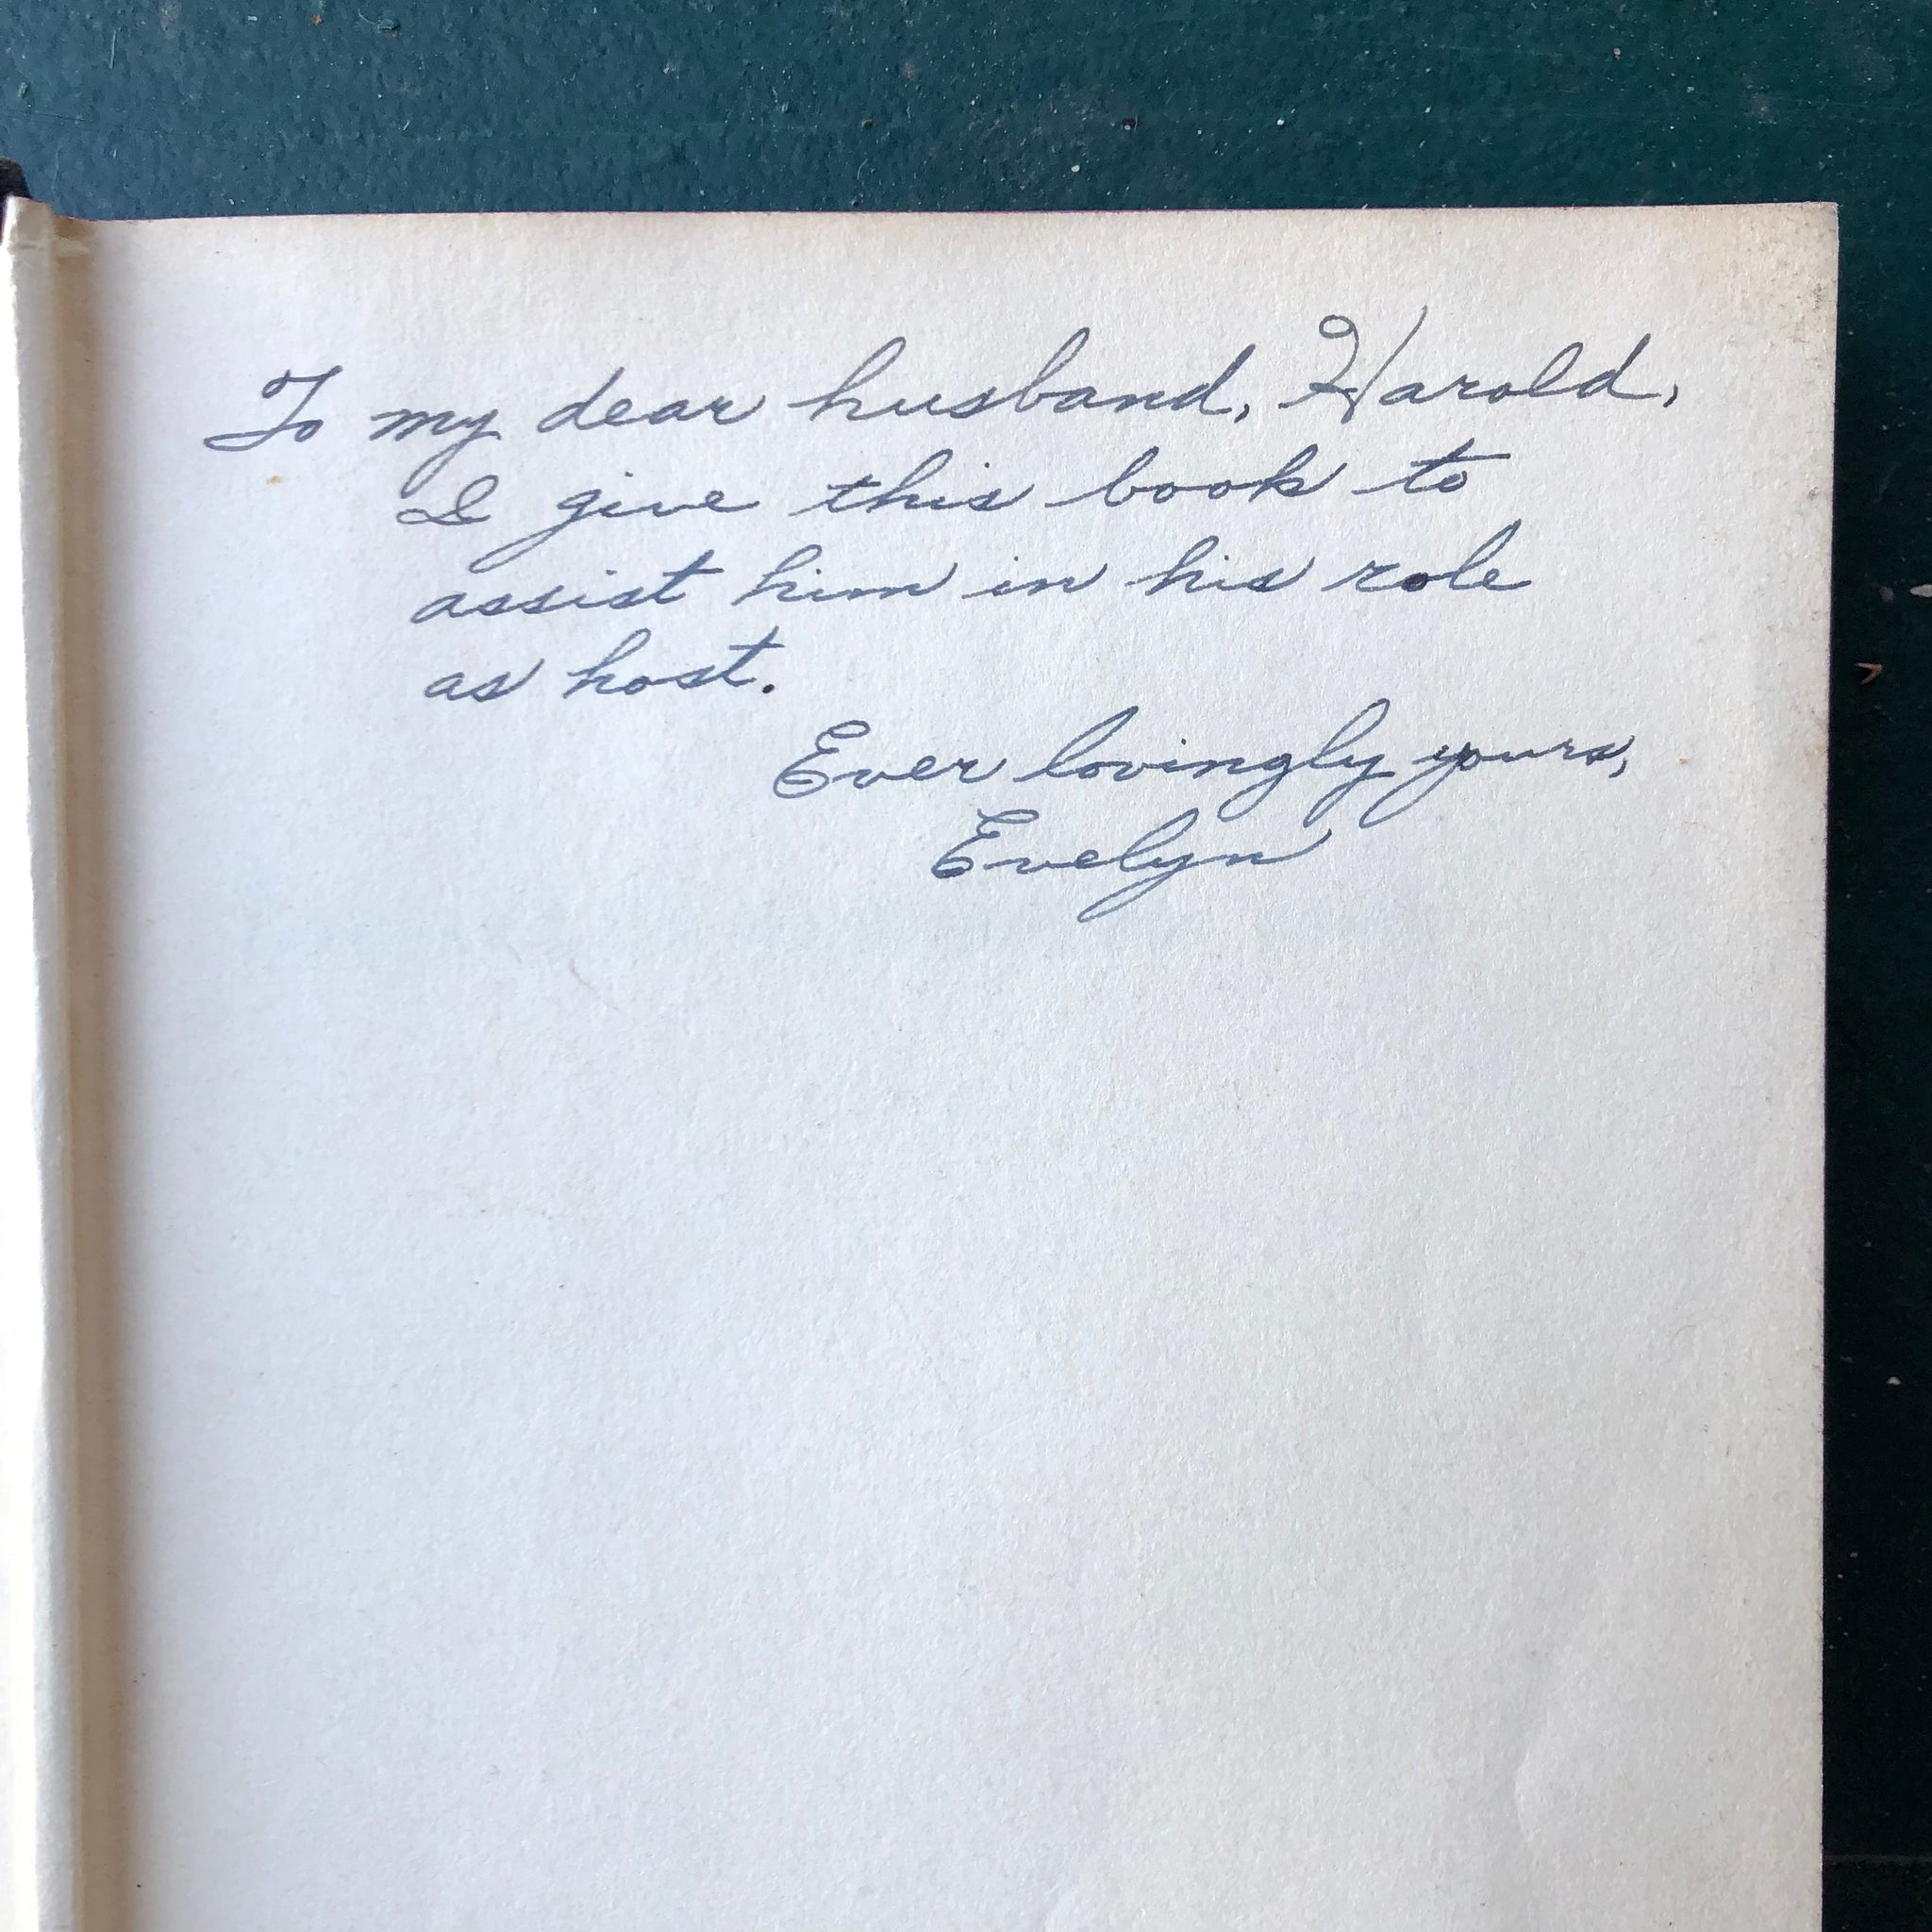 To my dear husband, Harold,
I give this book to
assist him in his role
as host.
Ever lovingly yours,
Evelyn